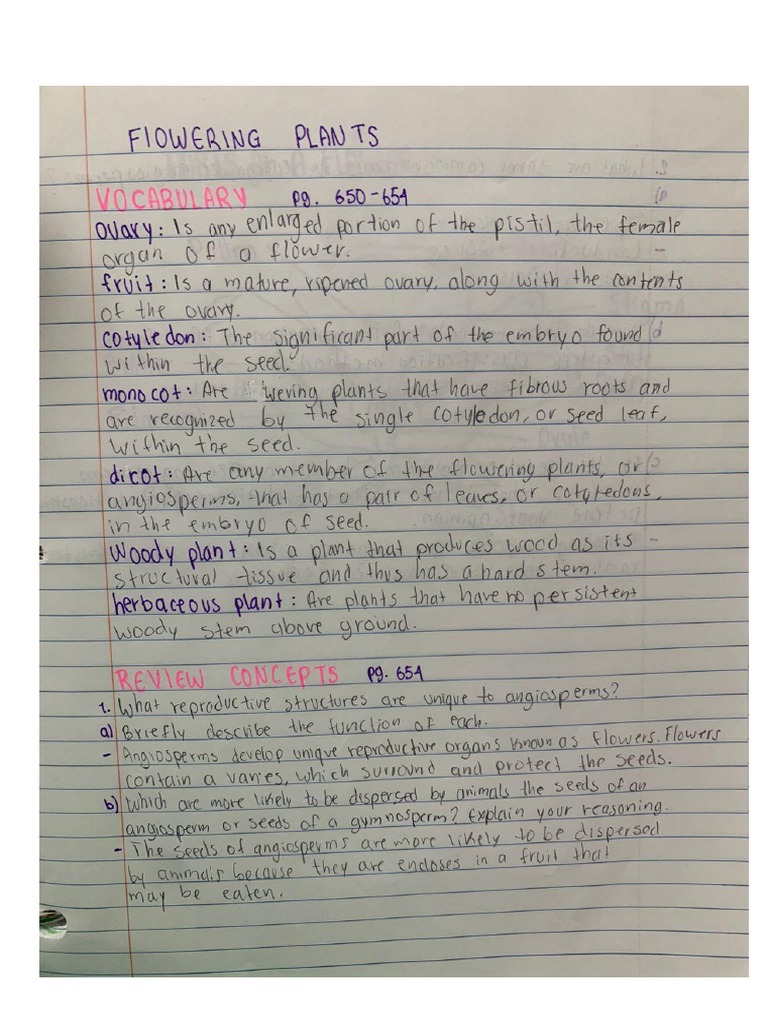 FlOWERING PLANTS
VOCABULARY pg. 650-654
ovary: Is any enlarged portion of the pistil, the female
organ of a flower.
fruit: Is a mature, ripened ovary, along with the contents
of the ovary.
cotyledon: The significant part of the embryo found
within the seed.
monocot: Are wering plants that have fibrous roots and
are recognized by the single cotyledon, or seed leaf,
within the seed.
dicot: Are any member of the flowering plants, or
angiosperms, that has a pair of leaves, or cotyledons,
in the embryo of seed.
Woody plant: Is a plant that produces wood as its
structural tissue and thus has a hard stem.
herbaceous plant: Are plants that have no persistent
woody stem above ground.
REVIEW CONCEPTS pg. 654
1. What reproductive structures are unique to angiosperms?
a) Briefly describe the function of each.
- Angiosperms develop unique reproductive organs known as flowers. Flowers
contain a varies, which surround and protect the seeds.
b) Which are more likely to be dispersed by animals the seeds of an
angiosperm or seeds of a gymnosperm? Explain your reasoning.
- The seeds of angiosperms are more likely to be dispersed
by animals because they are encloses in a fruit that
may be eaten.